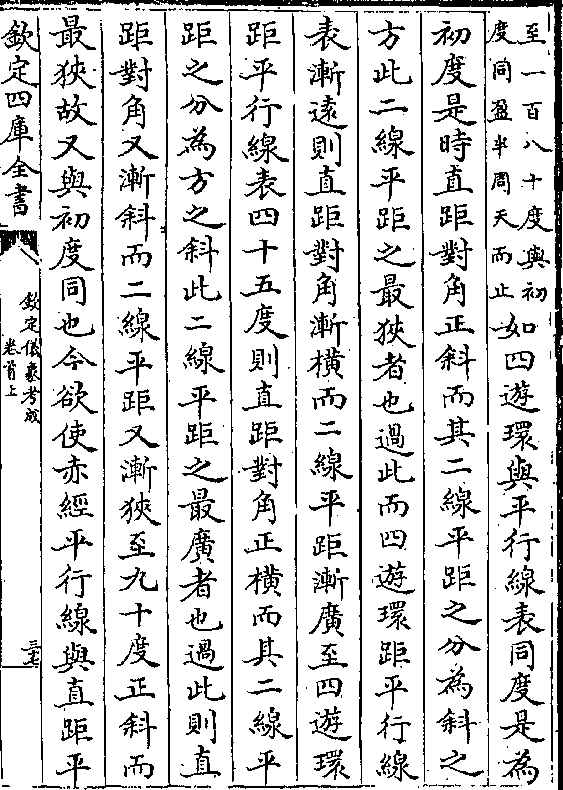 至一百八十度與初
度同盈半周天而止
如四遊環與平行線表同度是為
初度是時直距對角正斜而其二線平距之分為斜之
方此二線平距之最狹者也過此而四遊環距平行線
表漸遠則直距對角漸橫而二線平距漸廣至四遊環
距平行線表四十五度則直距對角正橫而其二線平
距之分為方之斜此二線平距之最廣者也過此則直
距對角又漸斜而二線平距又漸狹至九十度正斜而
最狹故又與初度同也今欲使赤經平行線與直距平
欽定四庫全書
欽定儀象考成
卷首上
三七